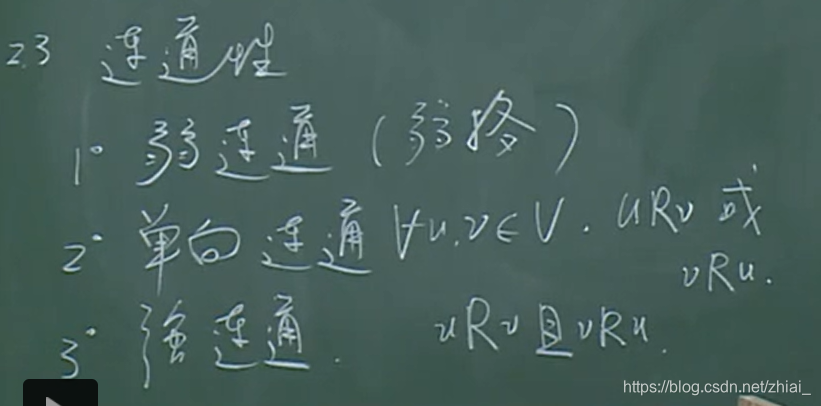 2.3 连通性
1° 弱连通 (弱路)
2° 单向连通 ∀u,v∈V. uRv 或
vRu.
3° 强连通. uRv且vRu.
https://blog.csdn.net/zhiai_